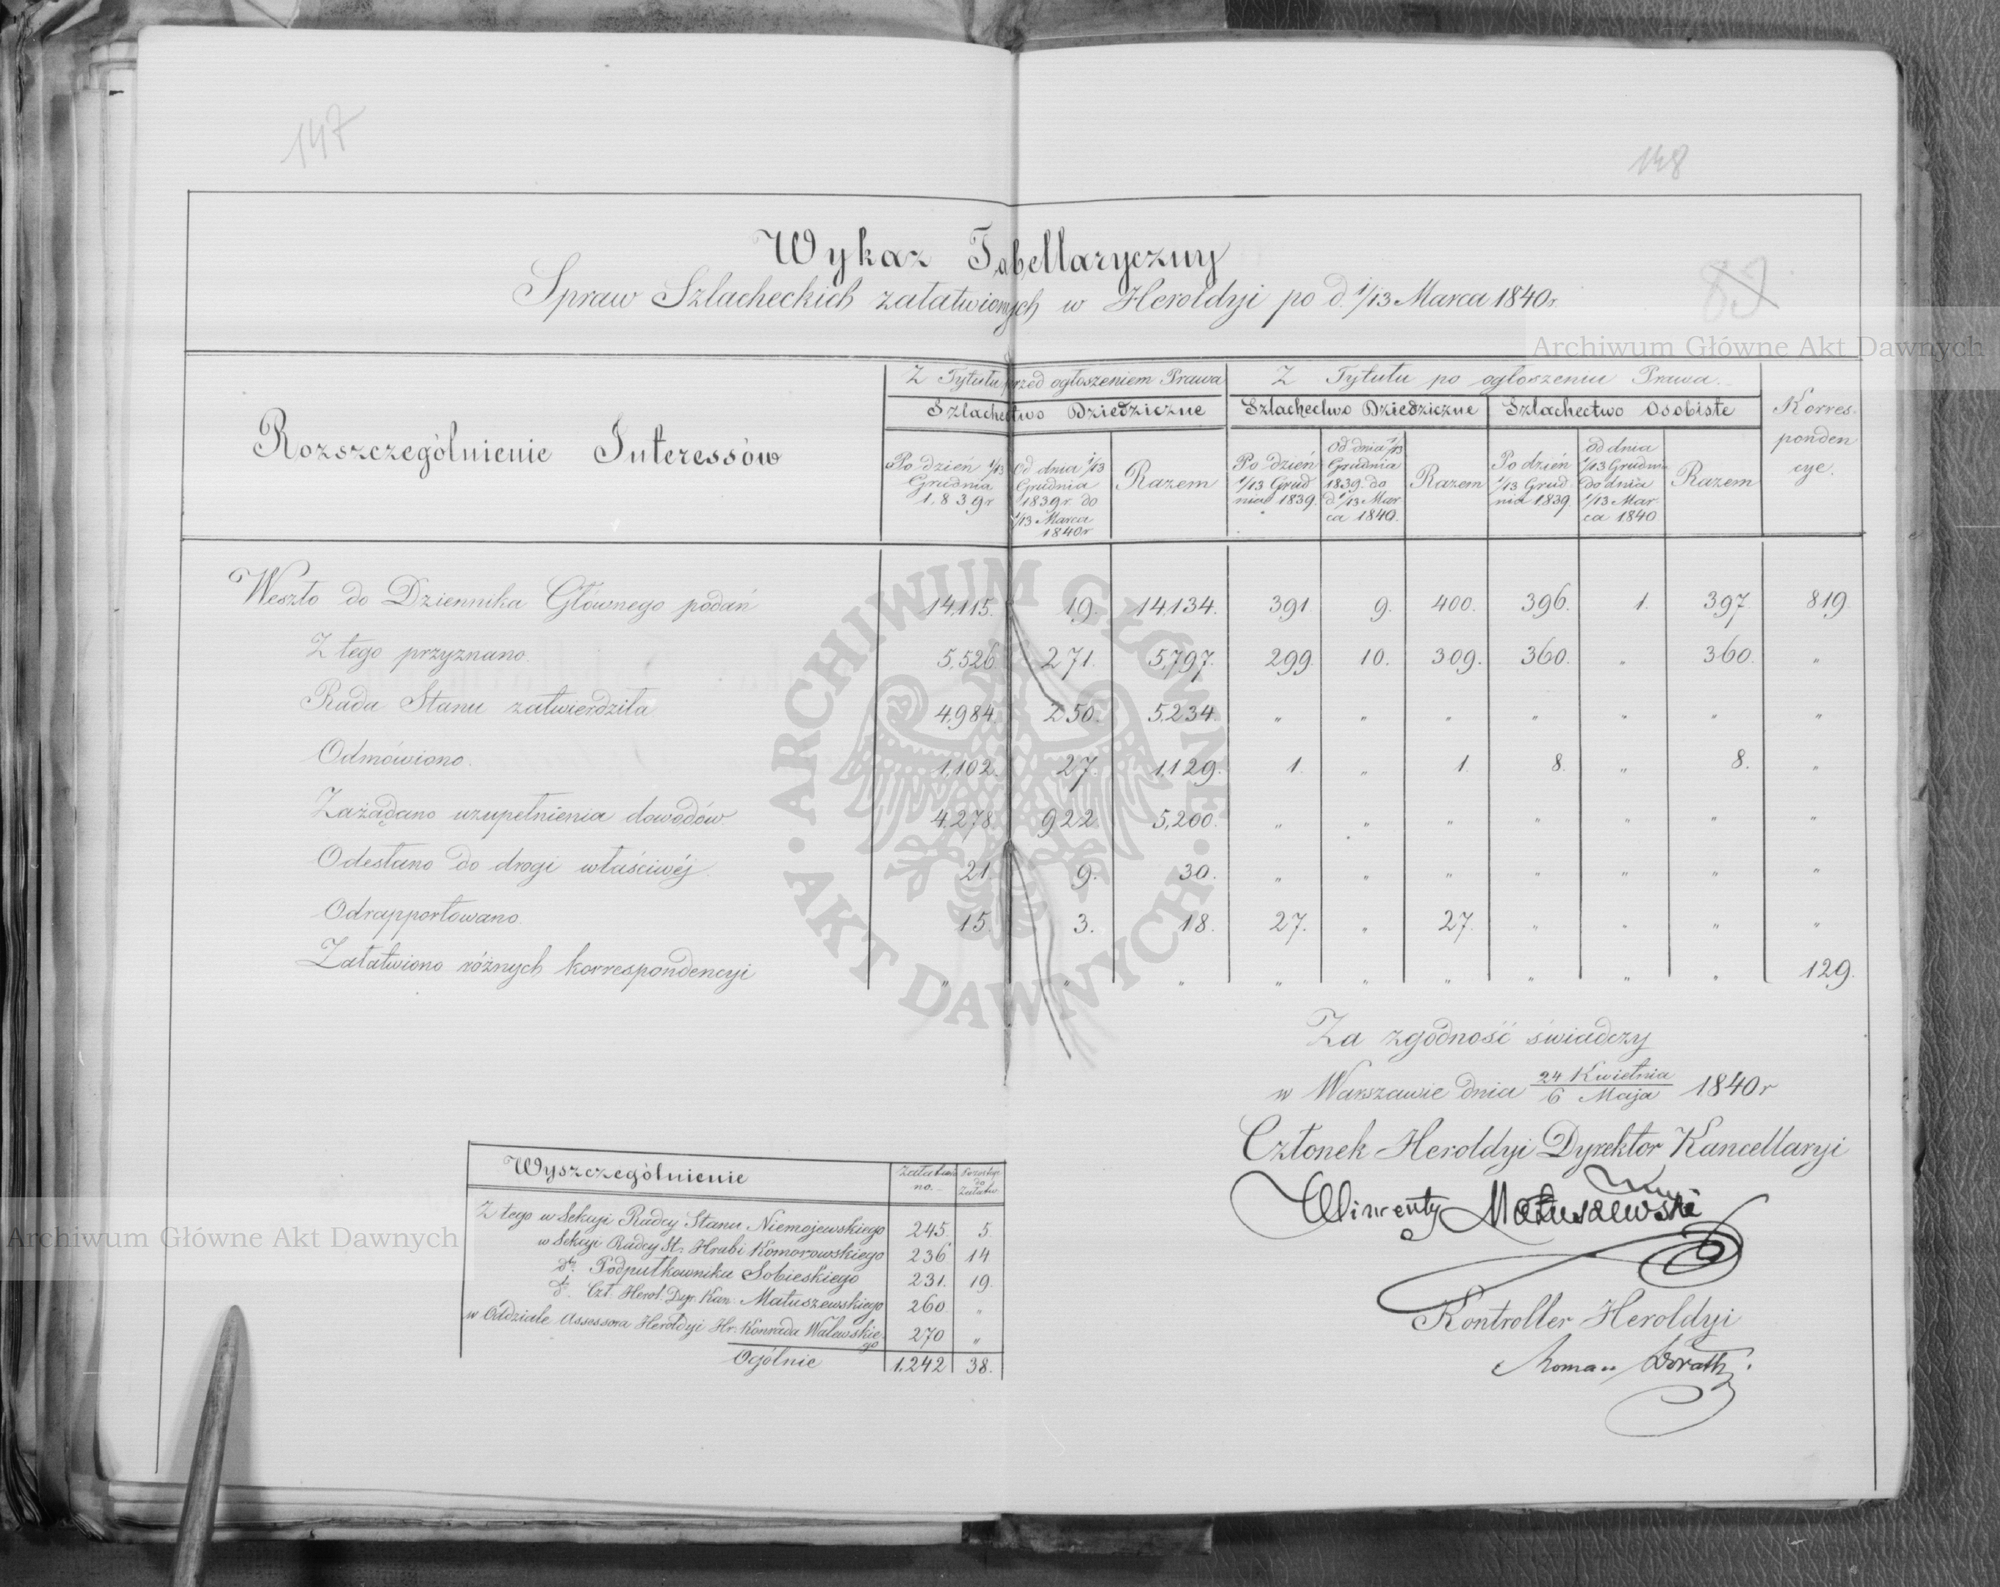 147
148
Wykaz Tabellaryczny
Spraw Szlacheckich załatwionych w Heroldyi po d. 1/13 Marca 1840 r.
83
Archiwum Główne Akt Dawnych
Rozszczególnienie Interessów
Z Tytułu przed ogłoszeniem Prawa
Z Tytułu po ogłoszeniu Prawa.
Korres-
ponden
cye.
Szlachectwo Dziedziczne
Szlachectwo Dziedziczne
Szlachectwo Osobiste
Po dzień 1/13 Grudnia 1,839 r
Od dnia 1/13 Grudnia 1839 r. do 1/13 Marca 1840 r
Razem
Po dzień 1/13 Grud nia 1839.
Od dnia 1/13 Grudnia 1839. do d 1/13 Mar ca 1840.
Razem
Po dzień 1/13 Grud. nia 1839.
Od dnia 1/13 Grudn. do dnia 1/13 Mar ca 1840
Razem
Weszło do Dziennika Głównego podań 14,115. 19. 14,134. 391 9. 400. 396. 1. 397 819
Z tego przyznano. 5,526 271. 5,797. 299. 10. 309. 360. " 360. "
Rada Stanu zatwierdziła 4,984. 250. 5,234. " " " " " " "
Odmówiono. 1,102. 27. 1,129. 1. " 1 8. " 8. "
Zażądano uzupełnienia dowodów. 4,278 922 5,200. " " " " " " "
Odesłano do drogi właściwéj. 21 9. 30. " " " " " " "
Odrapportowano. 15. 3. 18. 27. " 27. " " " "
Załatwiono różnych korrespondencyi " " " " " " " " " 129.
ARCHIWUM GŁÓWNE · AKT DAWNYCH ·
Za zgodność świadczy
w Warszawie dnia 24 Kwietnia / 6 Maja 1840 r
Członek Heroldyi Dyrektor Kancellaryi
Wincenty Matuszewski
Kontroller Heroldyi
Roman
Wyszczególnienie Załatwio no. do Załatw.
Z tego w Sekcyi Radcy Stanu Niemojewskiego 245. 5
w Sekcyi Radcy St. Hrabi Komorowskiego 236 14
dto. Podpułkownika Sobieskiego 231. 19.
dto. Czł. Herol. Dyr. Kan. Matuszewskiego 260 "
w Oddziale Assessora Heroldyi Hr. Konrada Walewskie- 270 "
go
Ogólnie 1,242 38.
Archiwum Główne Akt Dawnych